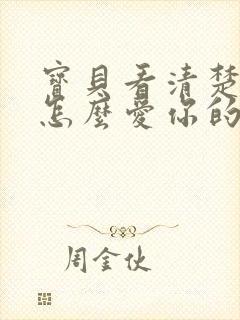 寶貝看清楚
怎麼愛你的
周金伙